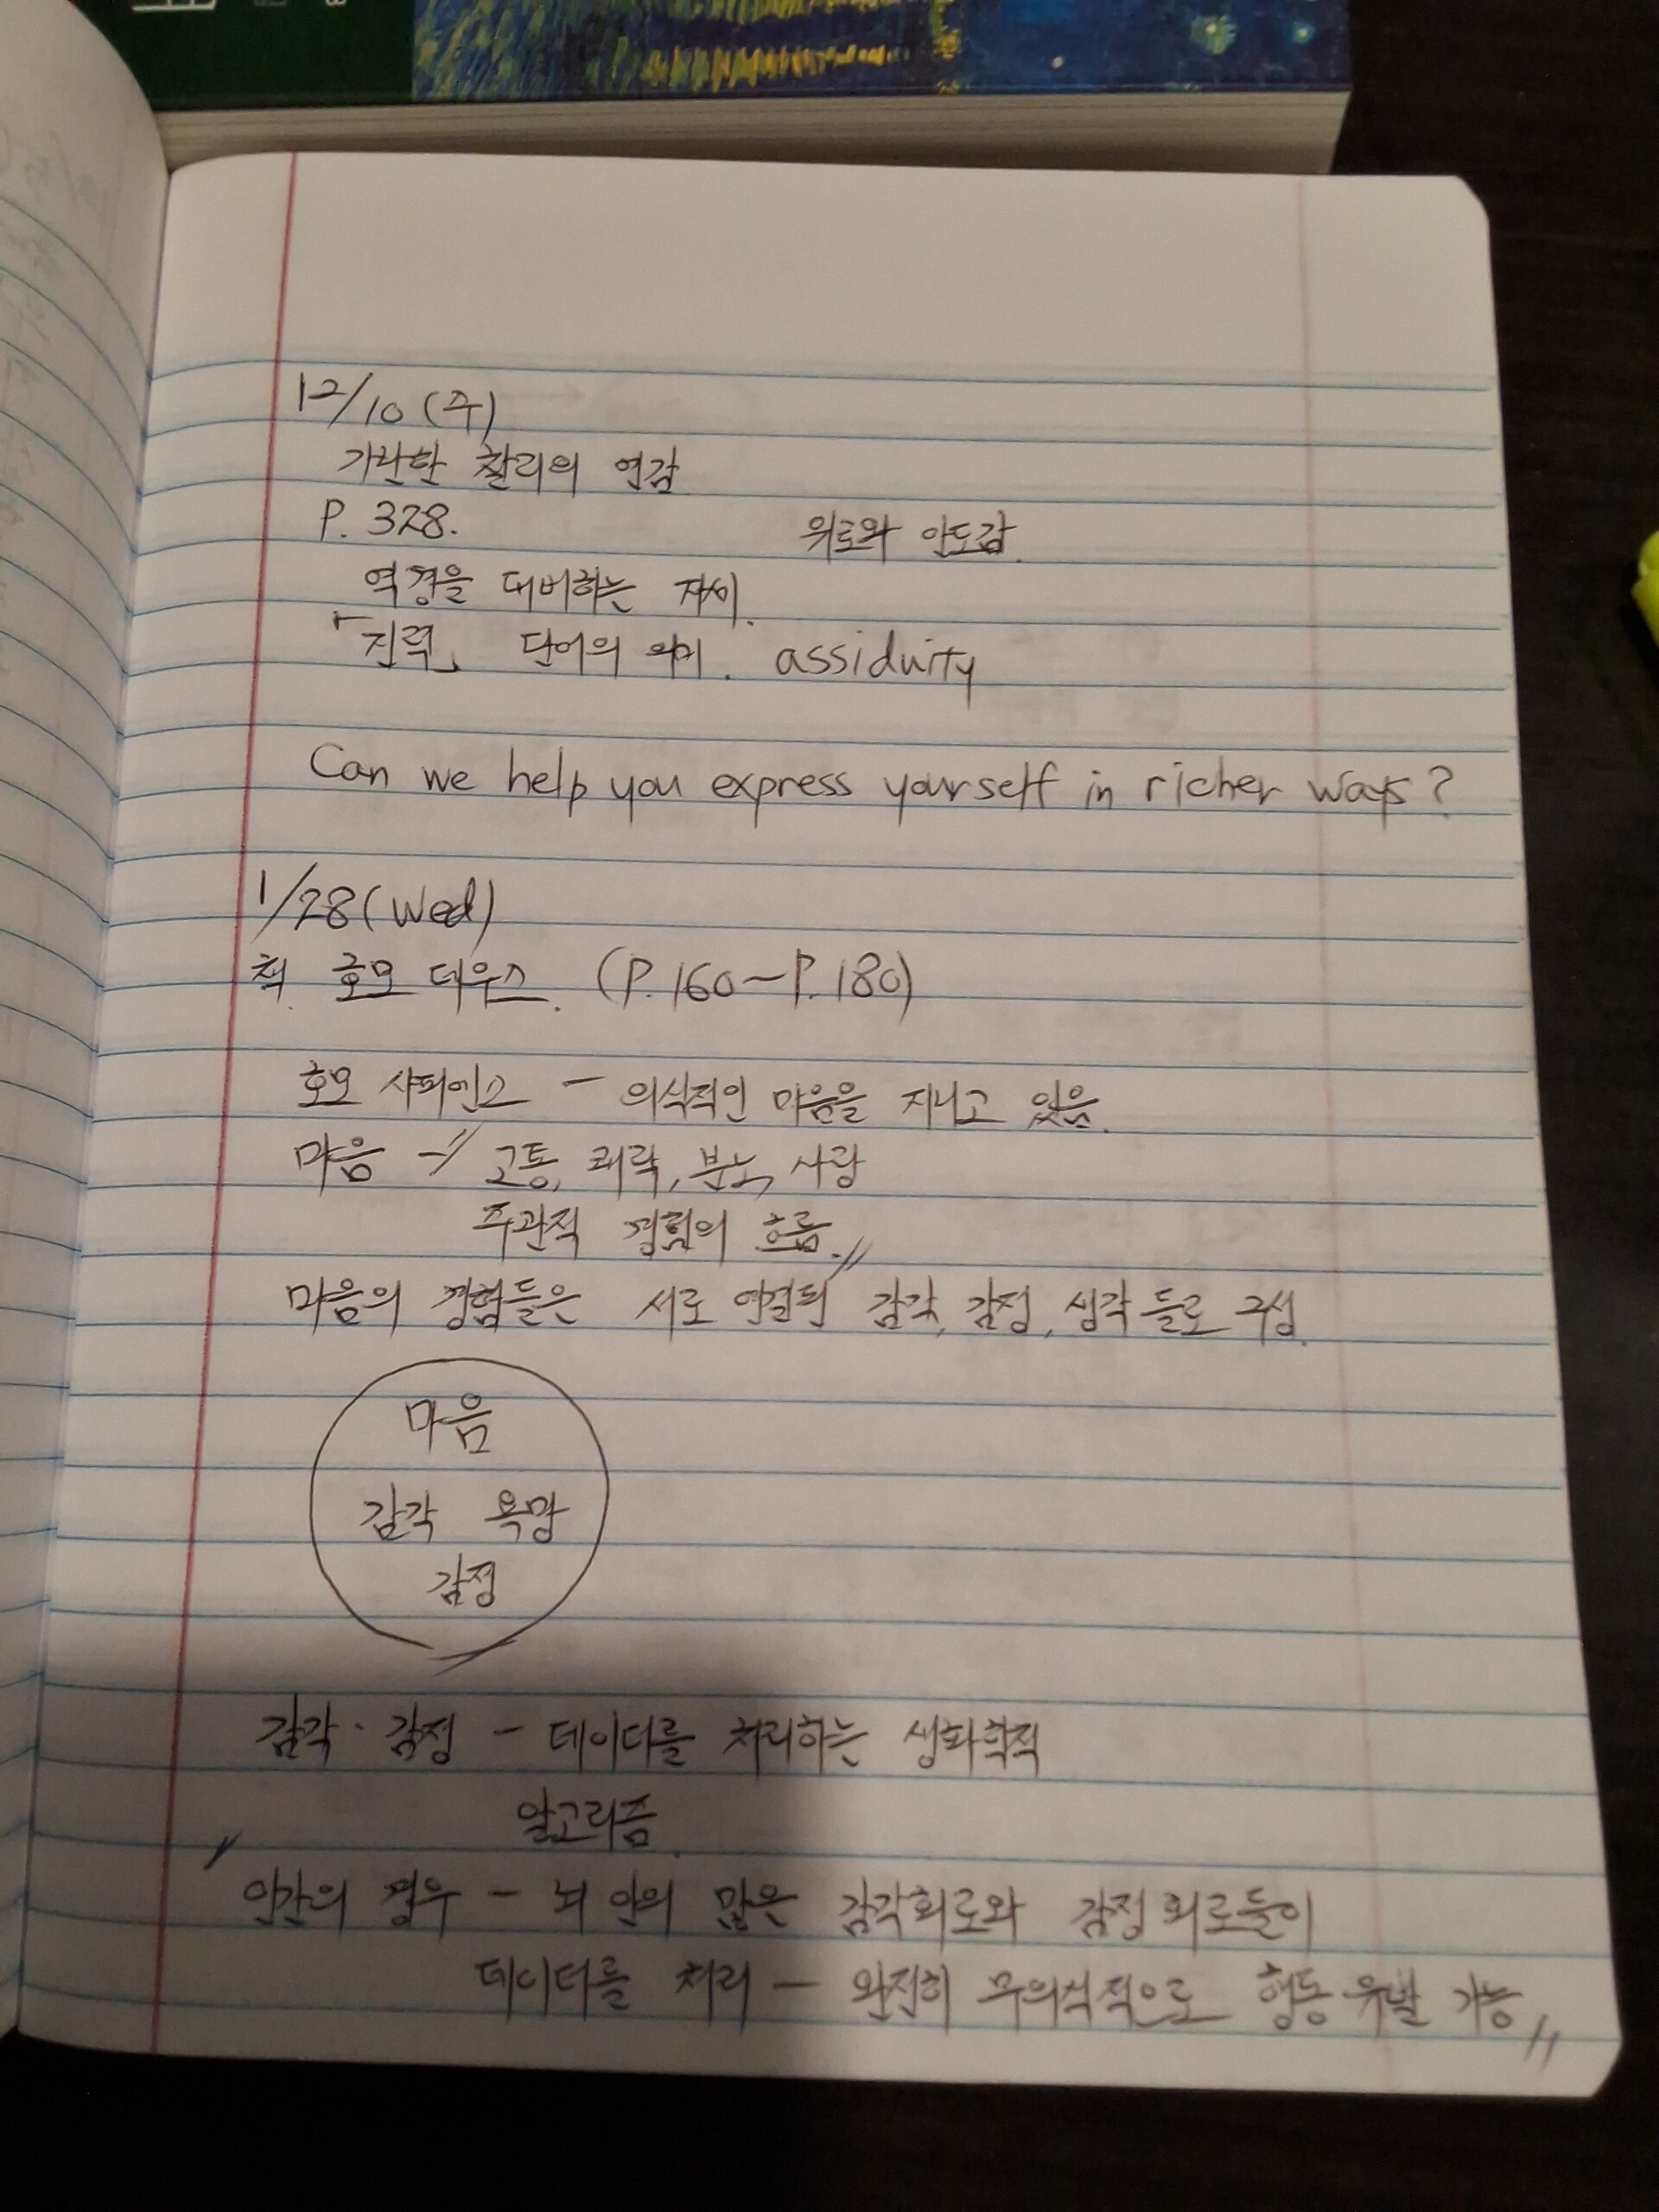 12/10 (주)
가난한 찰리의 연감
P. 328. 위로와 안도감.
역경을 대비하는 자세.
「진력」 단어의 의미. assiduity
Can we help you express yourself in richer ways?
1/28 (Wed)
책. 호모 데우스. (P. 160~P. 180)
호모 사피엔스 - 의식적인 마음을 지니고 있음.
마음 -〃 고통, 쾌락, 분노, 사랑
주관적 경험의 흐름.〃
마음의 경험들은 서로 연결된 감각, 감정, 생각 들로 구성.
마음
감각 욕망
감정
감각·감정 - 데이터를 처리하는 생화학적
알고리즘.
인간의 경우 - 뇌 안의 많은 감각회로와 감정 회로들이
데이터를 처리 - 완전히 무의식적으로 행동 유발 가능〃